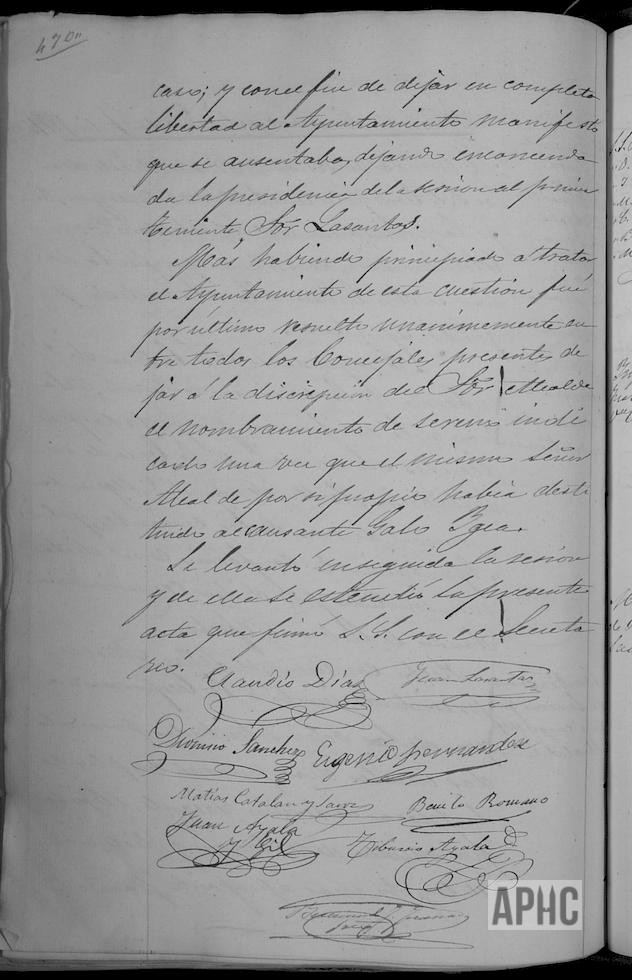 caso; y con el fin de dejar en completa
libertad al Ayuntamiento manifestó
que se ausentaba, dejando encomenda
da la presidencia de la sesion al primer
teniente Sor Lasantas.
Mas habiendo principiado a tratar
el Ayuntamiento de esta cuestion fué
por último resuelto unanimemente en
tre todos los Concejales presentes de
jar á la discrepcion del Sor Alcalde
el nombramiento de sereno indi
cado una vez que el mismo Señor
Alcalde por si propio habia desti
tuido al causante Galo Bgea.
Se levantó enseguida la sesion
y de ella se estendió la presente
acta que firmó S.S. con el Secreta
rio.
Claudio Díaz
Juan Lasantas
Dionisio Sanchez
Eugenio Fernandez
Matías Catalan y
Benito Romano
Juan Ayala
y Gil
Tiburcio Ayala
APHC